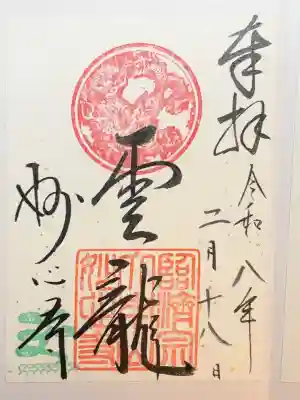 奉拝
令和八年
二月十八日
雲龍
妙心寺
臨済宗